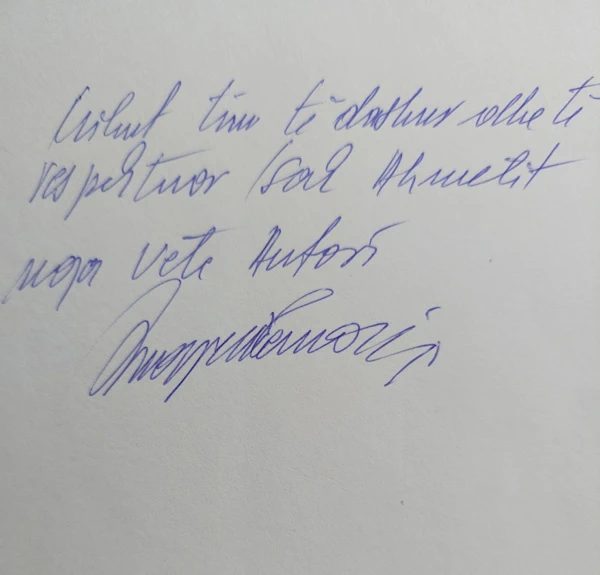 tim të dashur dhe të
respektuar Isak Ahmetit
nga vetë Autori